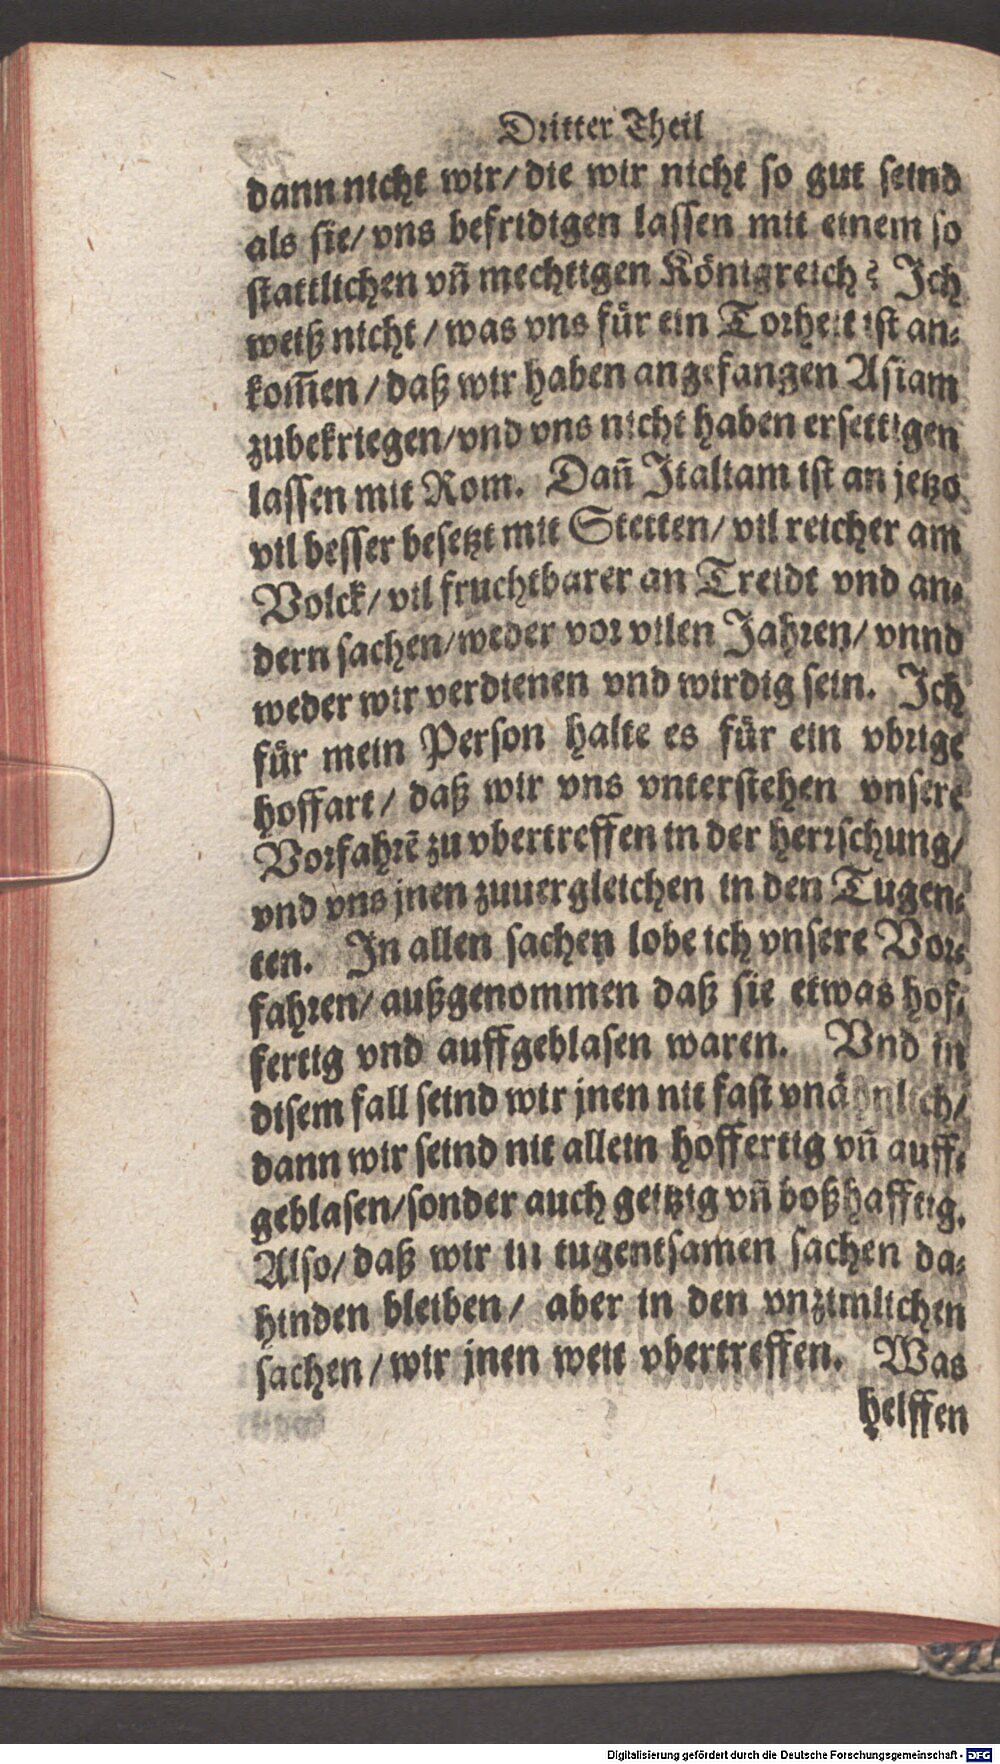 Dritter Theil
dann nicht wir/ die wir nicht so gut seind
als sie/ vns befridigen lassen mit einem so
stattlichen vñ mechtigen Königreich? Ich
weiß nicht/ was vns für ein Torheit ist an-
kom̃en/ daß wir haben angefangen Asiam
zubekriegen/ vnd vns nicht haben ersettigen
lassen mit Rom. Dañ Italiam ist an jetzo
vil besser besetzt mit Stetten/ vil reicher am
Volck/ vil fruchtbarer an Treidt vnd an-
dern sachen/ weder vor vilen Jahren/ vnnd
weder wir verdienen vnd wirdig sein. Ich
für mein Person halte es für ein vbrige
hoffart/ daß wir vns vnterstehen vnsere
Vorfahrẽ zu vbertreffen in der herrschung/
vnd vns jnen zuuergleichen in den Tugen-
ten. In allen sachen lobe ich vnsere Vor-
fahren/ außgenommen daß sie etwas hof-
fertig vnd auffgeblasen waren. Vnd in
disem fall seind wir jnen nit fast vnähnlich/
dann wir seind nit allein hoffertig vñ auff-
geblasen/ sonder auch geitzig vñ boßhafftig.
Also/ daß wir in tugentsamen sachen da-
hinden bleiben/ aber in den vnzimlichen
sachen/ wir jnen weit vbertreffen. Was
helffen
Digitalisierung gefördert durch die Deutsche Forschungsgemeinschaft - DFG